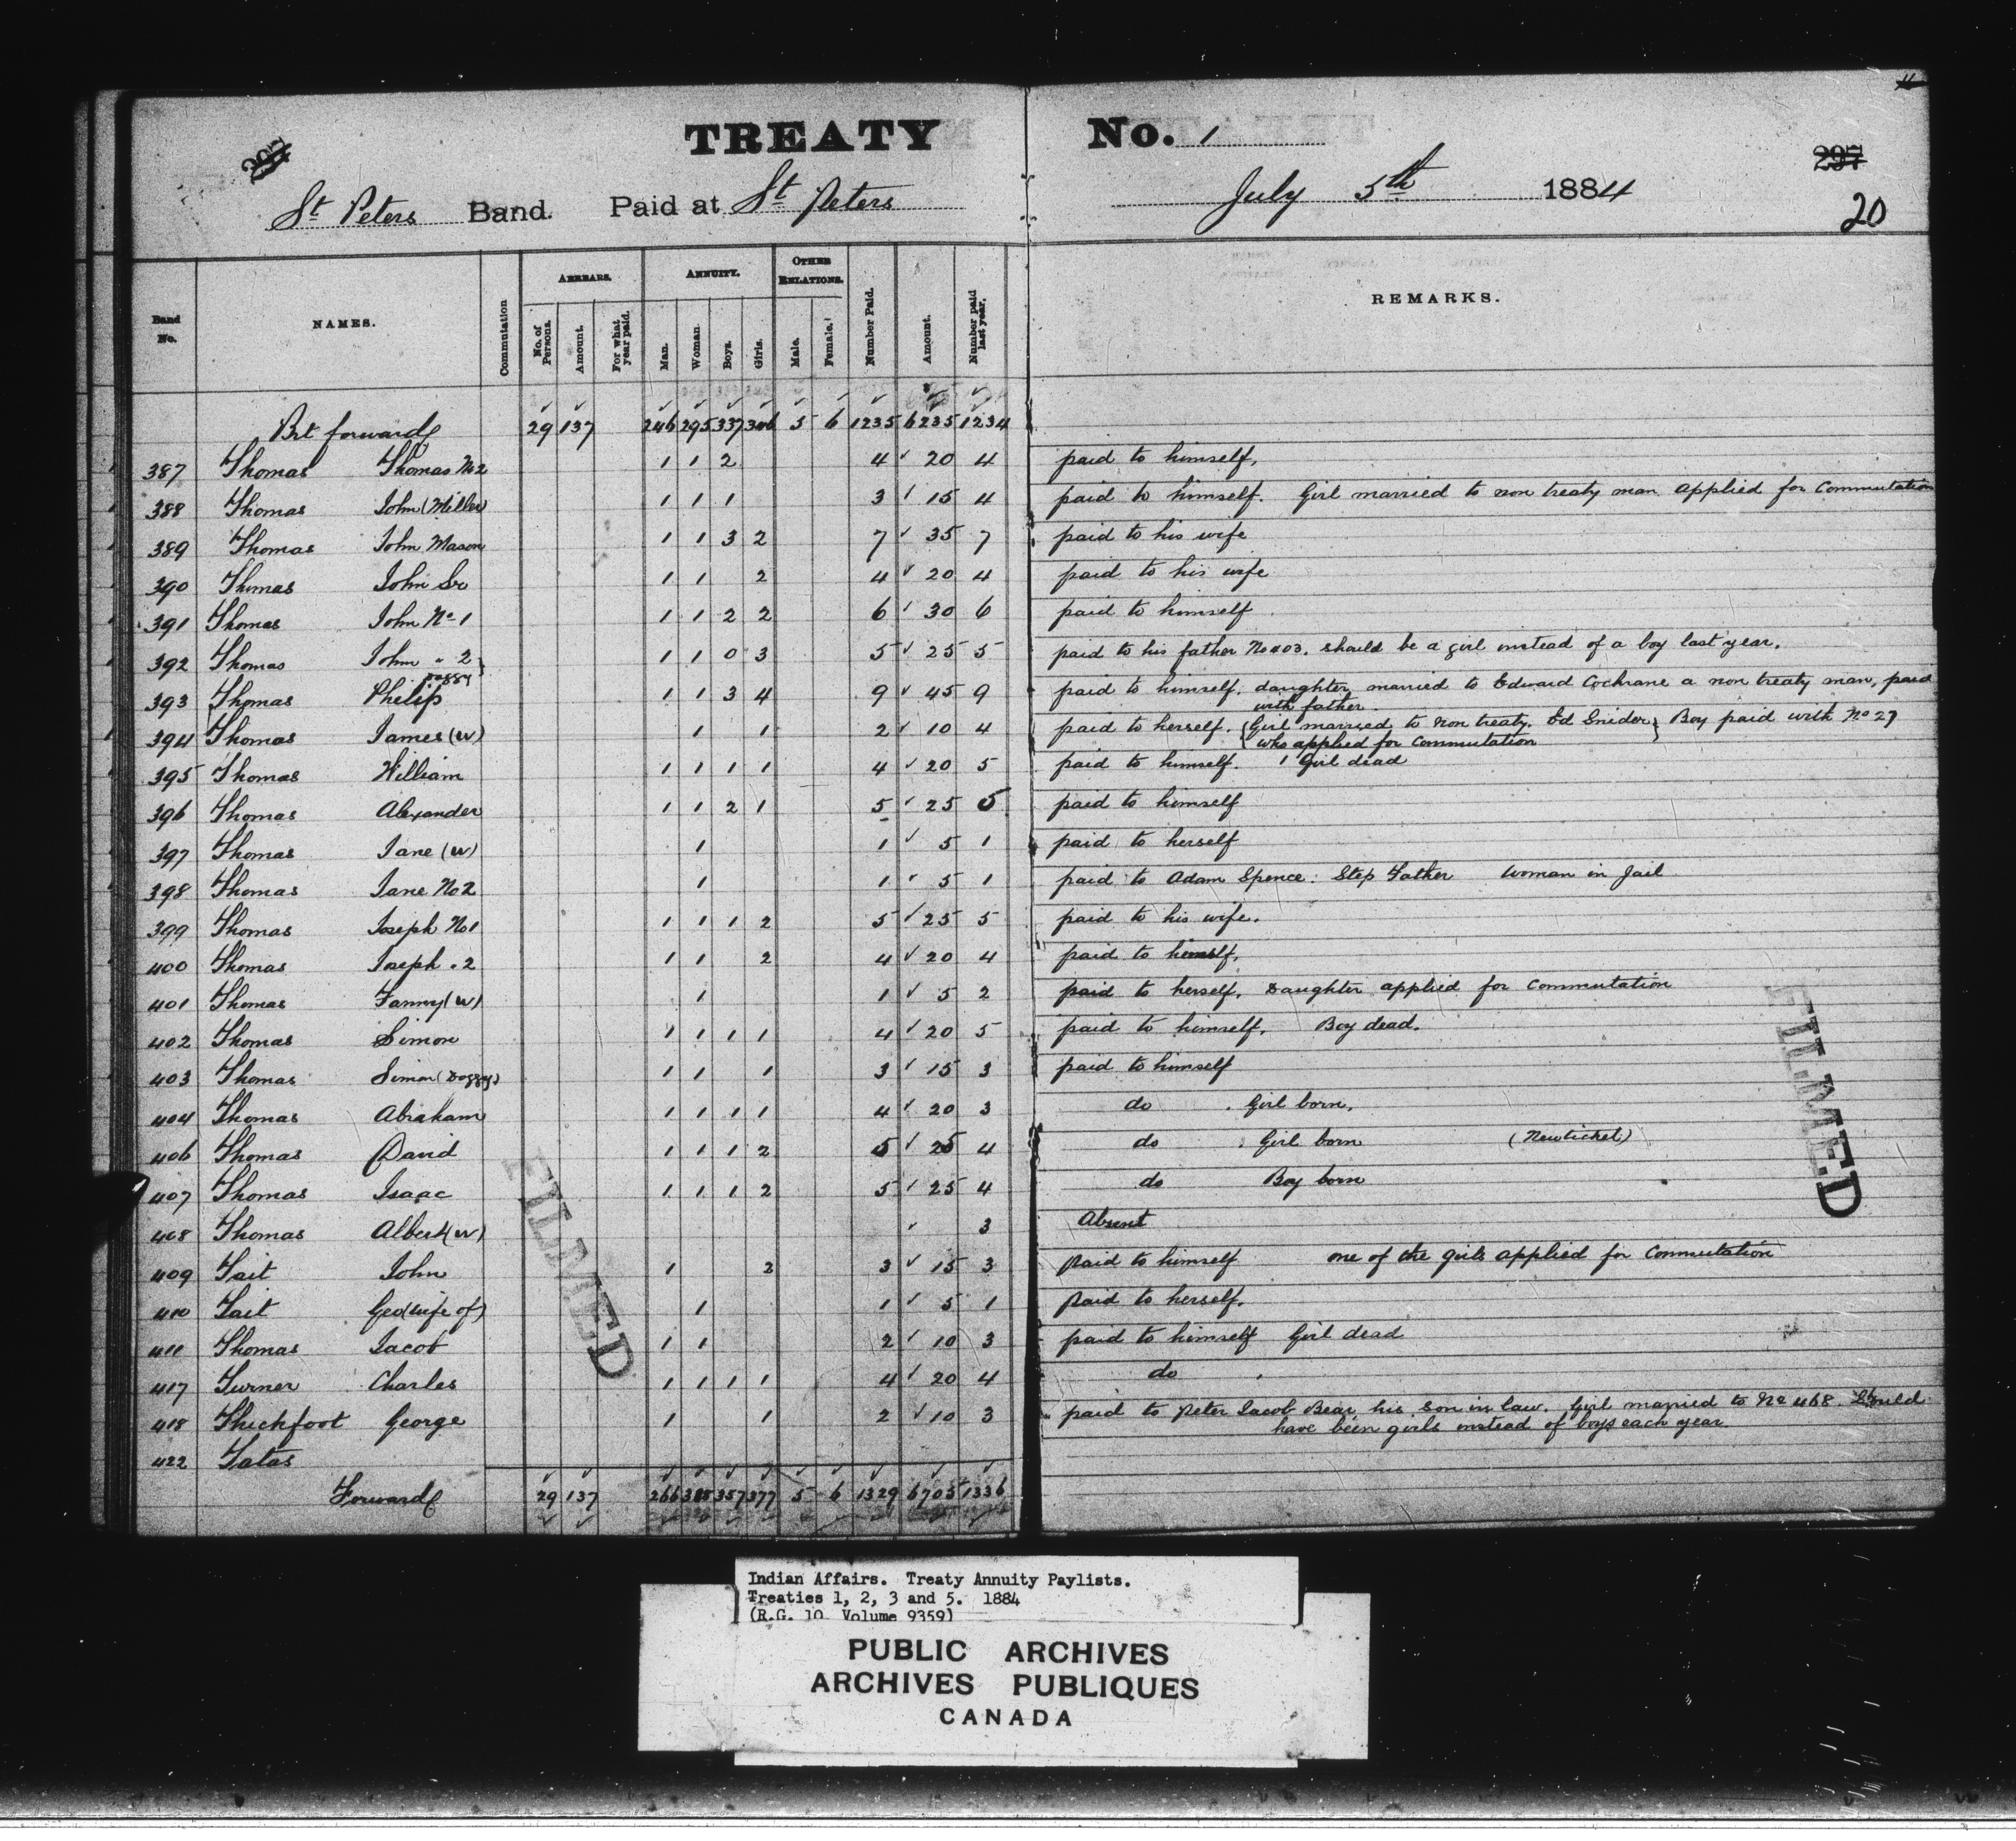 TREATY No. 1
297 297
St Peters Band. Paid at St Peters July 5th 1884
20
Band No. NAMES. Commutation ARREARS. No. of Persons. Amount. For what year paid. ANNUITY. Man. Woman. Boys. Girls. OTHER RELATIONS. Male. Female. Number Paid. Amount. Number paid last year. REMARKS.
Brt forward 29 137 246 295 337 346 5 6 1235 6235 1234
387 Thomas Thomas No 2 1 1 2 4 20 4 paid to himself.
388 Thomas John (Miller) 1 1 1 3 15 4 paid to himself. Girl married to non treaty man applied for Commutation
389 Thomas John Mason 1 1 3 2 7 35 7 paid to his wife
390 Thomas John Sr 1 1 2 4 20 4 paid to his wife
391 Thomas John No 1 1 1 2 2 6 30 6 paid to himself
392 Thomas John " 2 1 1 0 3 5 25 5 paid to his father No 403. should be a girl instead of a boy last year.
Doggy
393 Thomas Philip 1 1 3 4 9 45 9 paid to himself. daughter married to Edward Cochrane a non treaty man, paid
with father.
394 Thomas James (W) 1 1 2 10 4 paid to herself. {Girl married to non treaty. Ed Snider} Boy paid with No 27
{who applied for Commutation
395 Thomas William 1 1 1 1 4 20 5 paid to himself. 1 Girl dead
396 Thomas Alexander 1 1 2 1 5 25 5 paid to himself
397 Thomas Jane (W) 1 1 5 1 paid to herself
398 Thomas Jane No 2 1 1 5 1 paid to Adam Spence. Step Father Woman in Jail
399 Thomas Joseph No 1 1 1 1 2 5 25 5 paid to his wife.
400 Thomas Joseph " 2 1 1 2 4 20 4 paid to himself.
401 Thomas Fanny (W) 1 1 5 2 paid to herself. Daughter applied for Commutation
402 Thomas Simon 1 1 1 1 4 20 5 paid to himself. Boy dead.
403 Thomas Simon (Doggy) 1 1 1 3 15 3 paid to himself
404 Thomas Abraham 1 1 1 1 4 20 3 do . Girl born.
406 Thomas David 1 1 1 2 5 25 4 do . Girl born (New ticket)
407 Thomas Isaac 1 1 1 2 5 25 4 do Boy born
408 Thomas Albert (W) 3 Absent
409 Tait John 1 2 3 15 3 Paid to himself one of the girls applied for Commutation
410 Tait Geo (wife of) 1 1 5 1 Paid to herself.
411 Thomas Jacob 1 1 2 10 3 paid to himself Girl dead
417 Turner Charles 1 1 1 1 4 20 4 do .
418 Thickfoot George 1 1 2 10 3 paid to Peter Jacob Bear his son in law. Girl married to No 468. Should
have been girls instead of boys each year
422 Tatas
Forward 29 137 266 385 357 377 5 6 1329 6705 1336
FILMED
FILMED
Indian Affairs. Treaty Annuity Paylists.
Treaties 1, 2, 3 and 5. 1884
(R.G. 10 Volume 9359)
PUBLIC ARCHIVES
ARCHIVES PUBLIQUES
CANADA